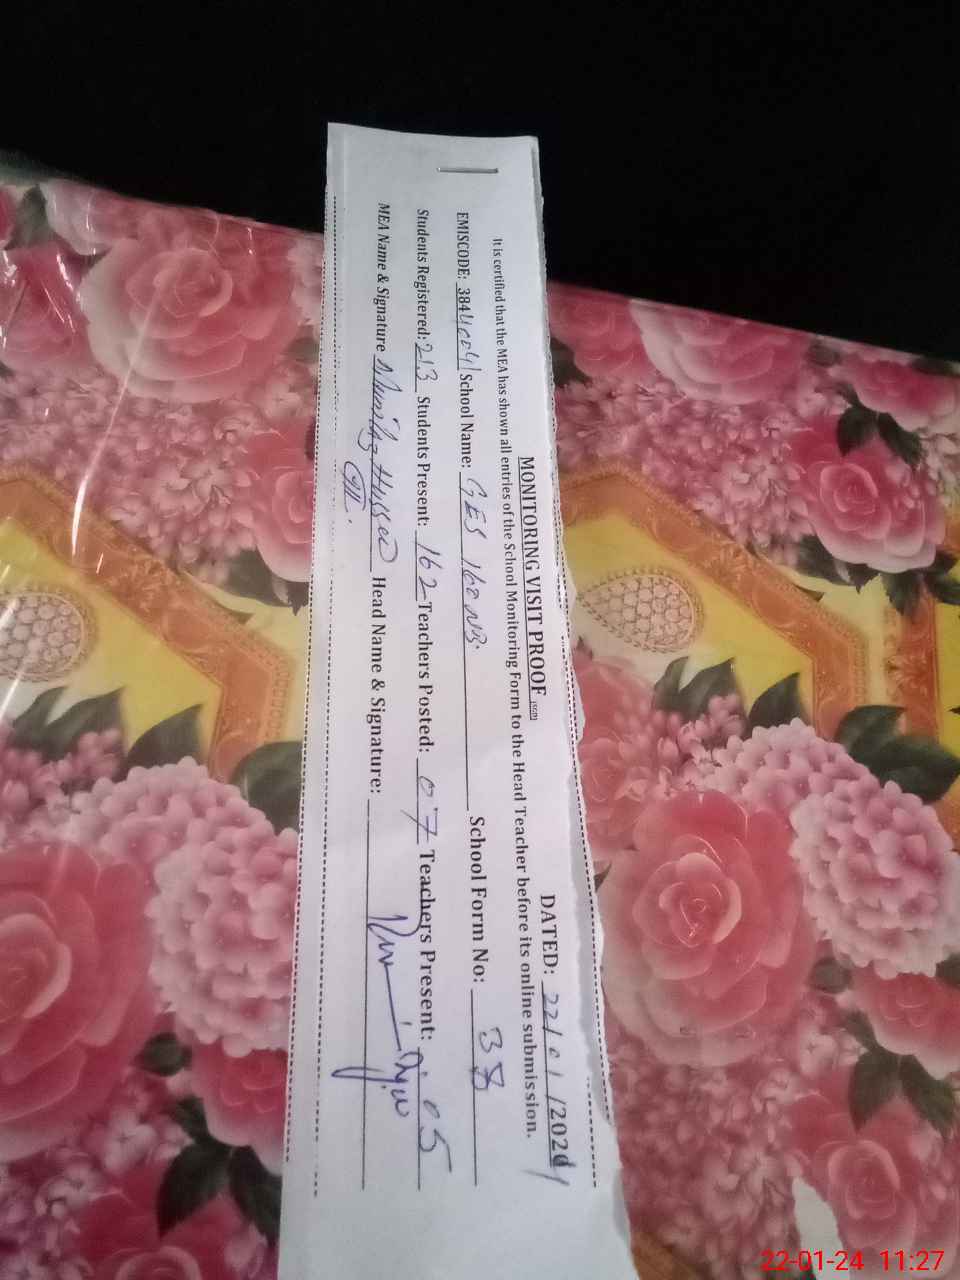 MONITORING VISIT PROOF DATED: 22/01/2024
It is certified that the MEA has shown all entries of the School Monitoring Form to the Head Teacher before its online submission.
EMISCODE: 384 School Name: GES 160 NB School Form No: 38
Students Registered: 213 Students Present: 162 Teachers Posted: 07 Teachers Present: 05
MEA Name & Signature Hussain Head Name & Signature:
22-01-24 11:27